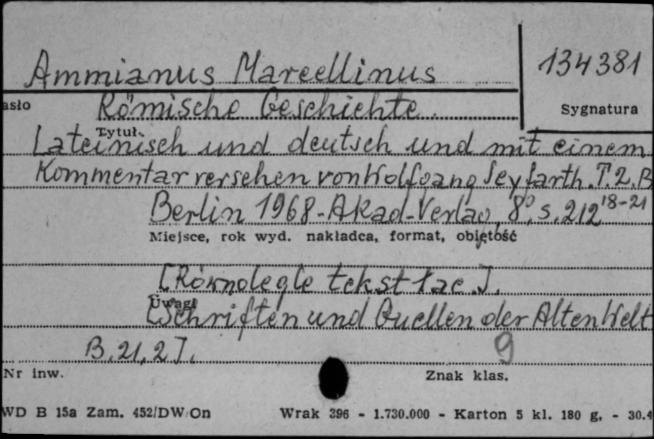 134381
Ammianus Marcellinus
asło
Römische Geschichte.
Sygnatura
Tytuł
Lateinisch und deutsch und mit einem
Kommentar versehen von Wolfgang Seyfarth. T. 2. B
Berlin 1968 - Akad-Verlag, 8°, s. 212 18-21
Miejsce, rok wyd. nakładca, format, objętość
[Równoległe tekst łac.].
Uwagi
[Schriften und Quellen der Alten Welt
B. 21, 2].
9
Nr inw.
Znak klas.
WD B 15a Zam. 452/DW/On Wrak 396 - 1.730.000 - Karton 5 kl. 180 g. - 30.4